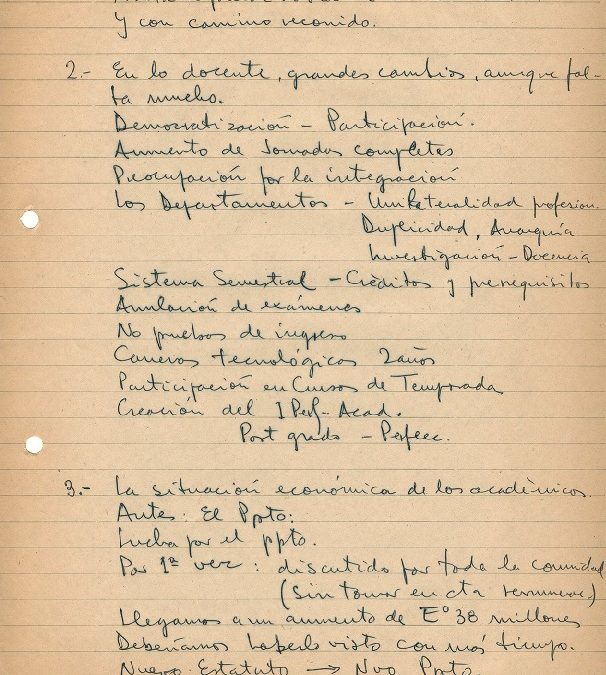 Y con camino recorrido.
2.- En lo docente, grandes cambios, aunque fal-
ta mucho.
Democratización - Participación.
Aumento de Jornadas completas
Preocupación por la integración
Los Departamentos - Unilateralidad profesion.
Duplicidad, Anarquía
Investigación - Docencia
Sistema Semestral - Créditos y prerequisitos
Anulación de exámenes
No pruebas de ingreso
Carreras tecnológicas 2 años
Participación en Cursos de Temporada
Creación del I Perf- Acad.
Post grado - Perfecc.
3.- La situación económica de los académicos.
Antes: El Ppto:
Lucha por el ppto.
Por 1ª vez: discutido por toda la comunidad
(sin tomar en cta remunerac.)
Llegamos a un aumento de Eº 38 millones
Deberíamos haberlo visto con más tiempo.
Nuevo Estatuto → Nvo Ppto.